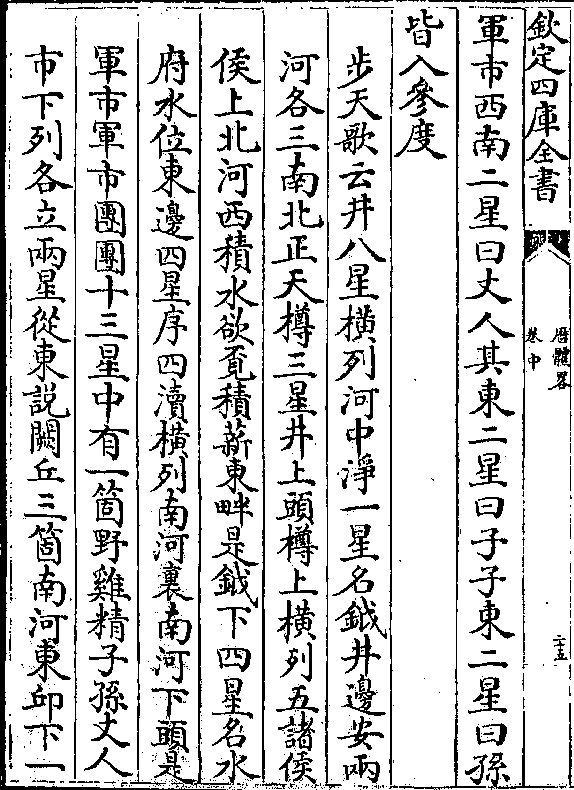 欽定四庫全書
厯體畧
卷中
二十五
軍市西南二星曰丈人其東二星曰子子東二星曰孫
皆入參度
步天歌云井八星橫列河中淨一星名鉞井邊安兩
河各三南北正天樽三星井上頭樽上橫列五諸侯
侯上北河西積水欲覓積薪東畔是鉞下四星名水
府水位東邊四星序四瀆橫列南河裏南河下頭是
軍市軍市團團十三星中有一箇野雞精子孫丈人
市下列各立兩星從東説闕丘三箇南河東邱下一